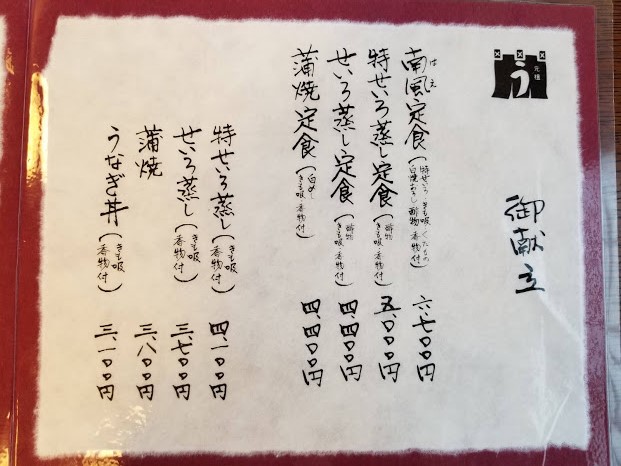 元祖
う
御献立
南風定食(特せいろ きも吸 くだもの 白焼むし 酢物 香物付) 六、七〇〇円
はえ
特せいろ蒸し定食(酢物 きも吸・香物付) 五、〇〇〇円
せいろ蒸し定食(酢物 きも吸・香物付) 四、四〇〇円
蒲焼定食(白めし きも吸・香物付) 四、四〇〇円
特せいろ蒸し(きも吸 香物付) 四、一〇〇円
せいろ蒸し(きも吸 香物付) 三、七〇〇円
蒲焼 三、八〇〇円
うなぎ丼(きも吸 香物付) 三、一〇〇円